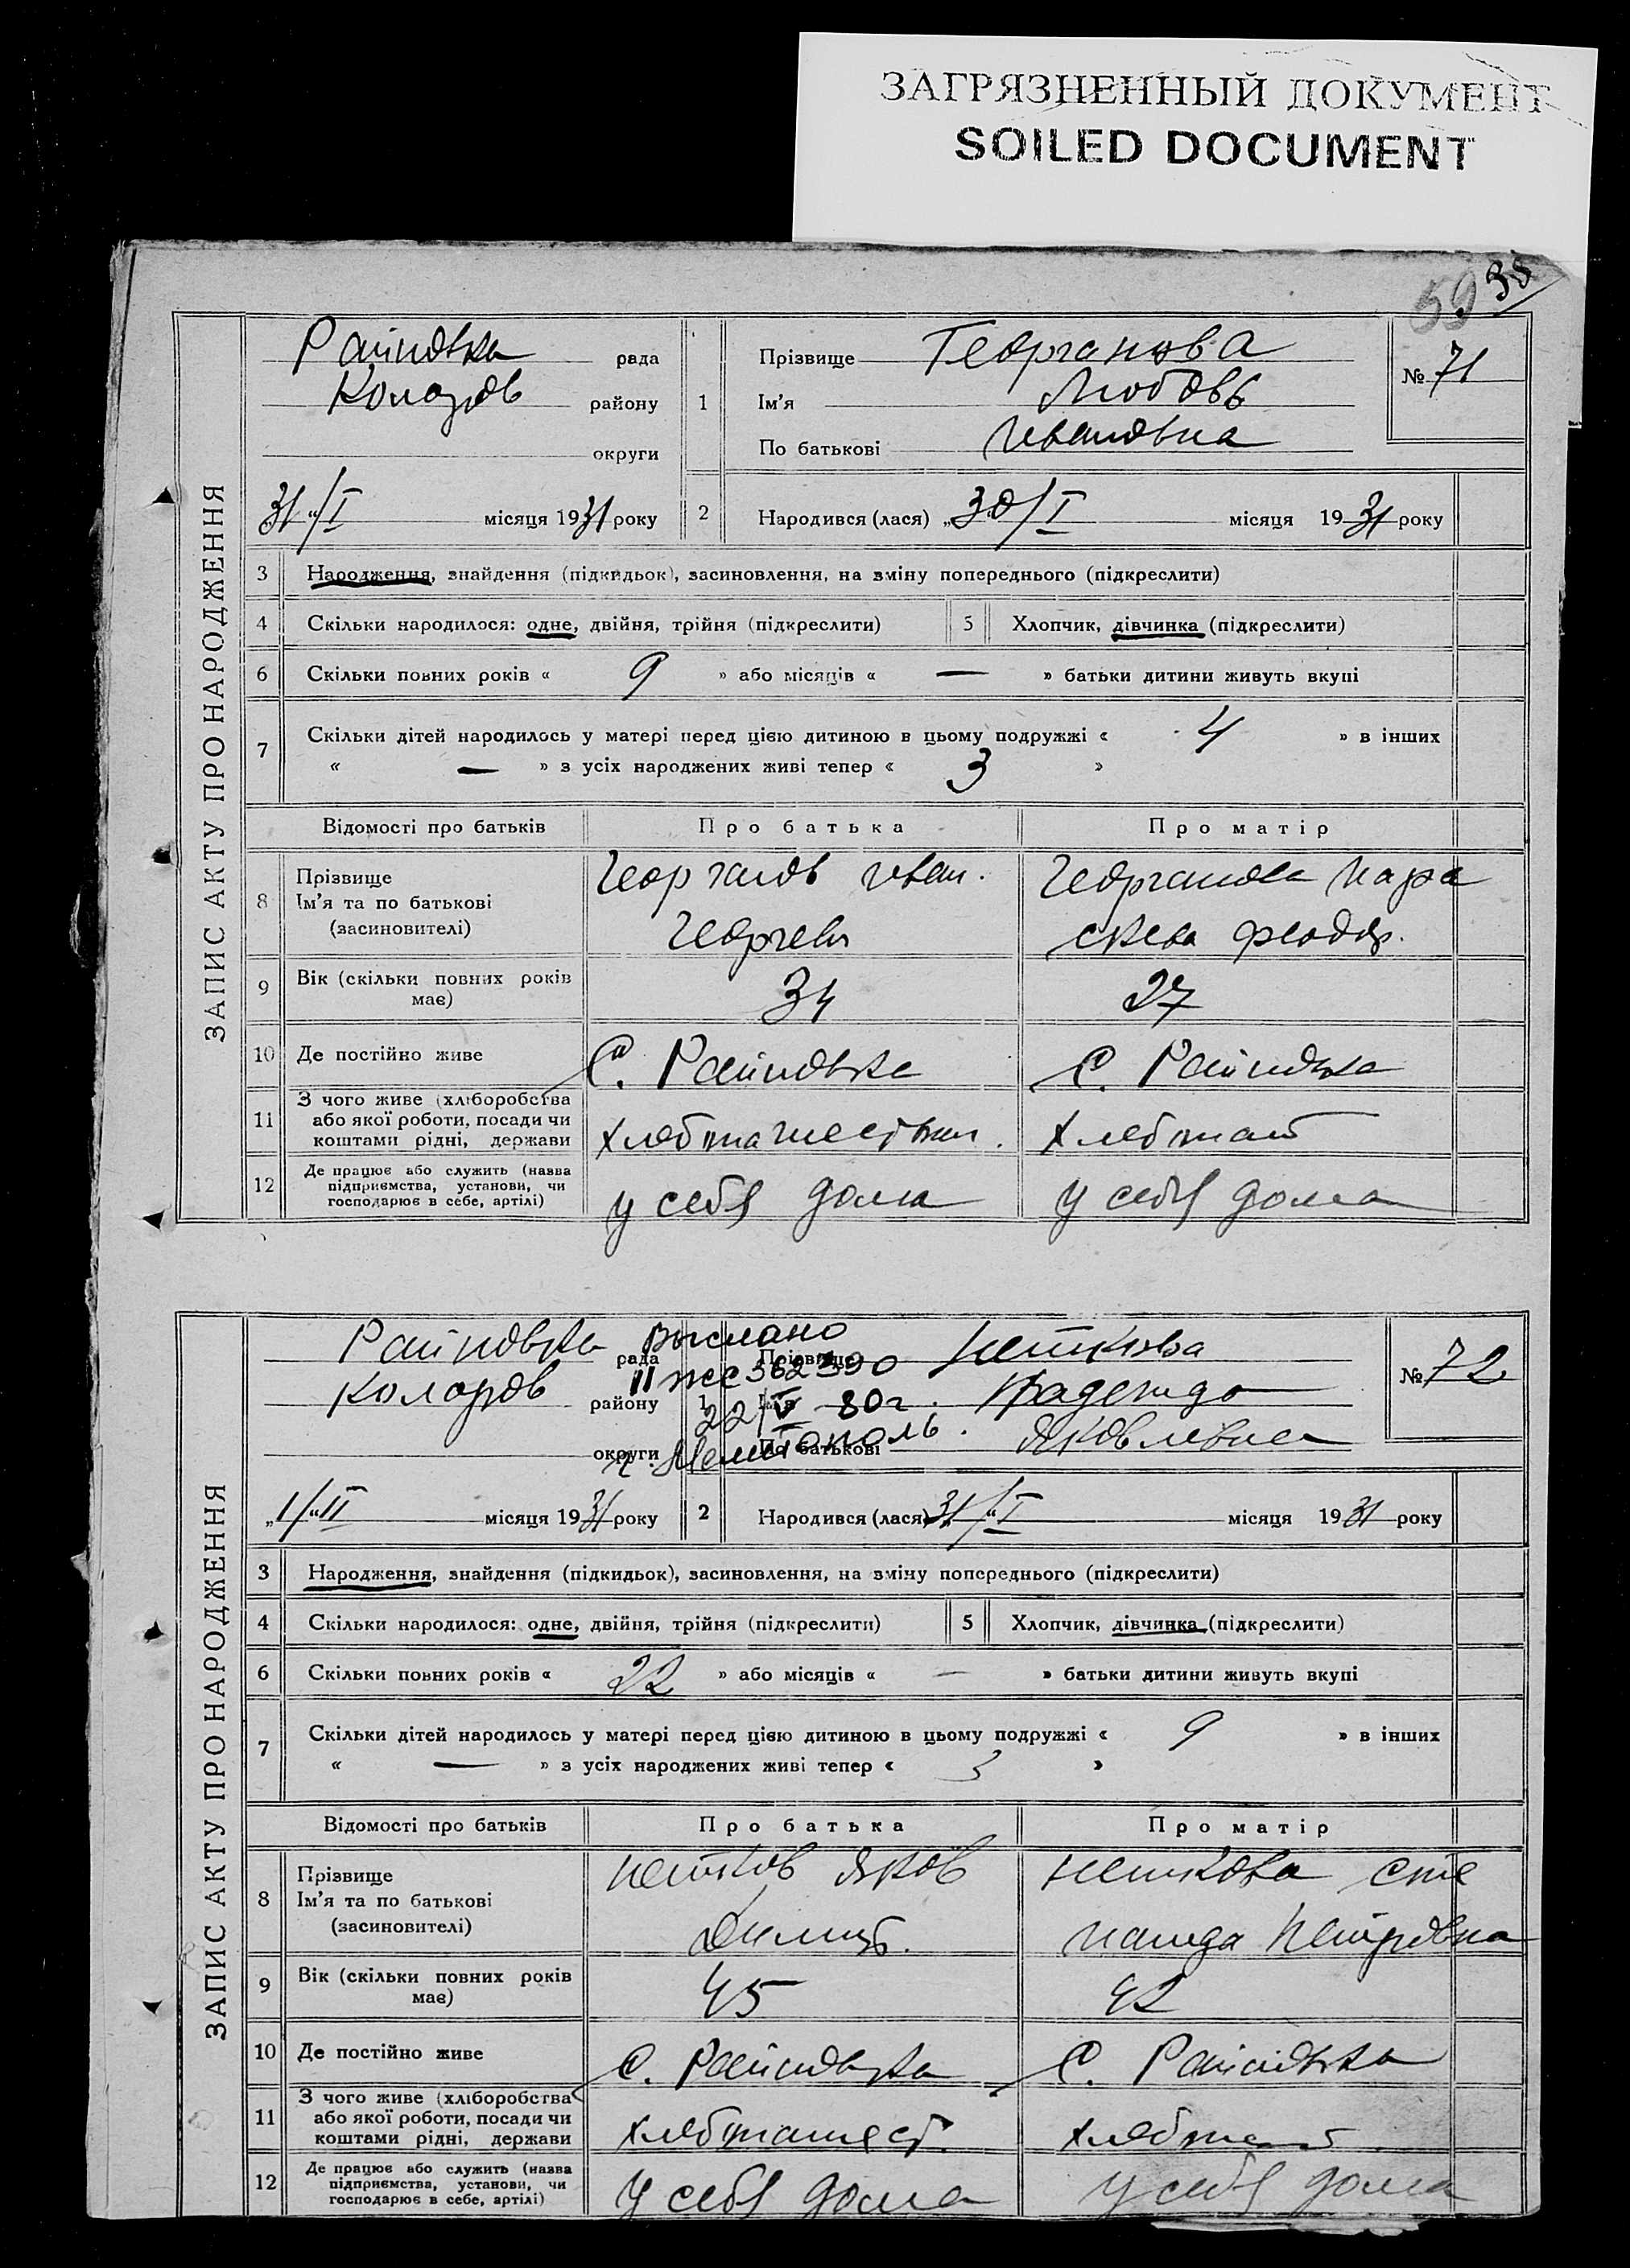 ЗАГРЯЗНЕННЫЙ ДОКУМЕНТ
SOILED DOCUMENT
59 38
ЗАПИС АКТУ ПРО НАРОДЖЕННЯ
Райновка рада
Коларов району
округи
„31“/I місяця 1931 року
1 Прізвище Георганова
Ім'я Любовь
По батькові Ивановна
№ 71
2 Народився (лася) „30/I місяця 1931 року
3 Народження, знайдення (підкидьок), засиновлення, на зміну попереднього (підкреслити)
4 Скільки народилося: одне, двійня, трійня (підкреслити) 5 Хлопчик, дівчинка (підкреслити)
6 Скільки повних років « 9 » або місяців « — » батьки дитини живуть вкупі
7 Скільки дітей народилось у матері перед цією дитиною в цьому подружжі « 4 » в інших
« — » з усіх народжених живі тепер « 3 »
Відомості про батьків Про батька Про матір
8 Прізвище Ім'я та по батькові (засиновителі)
Георганов Иван. Георгиев
Георганова Параскева Феодор.
9 Вік (скільки повних років має) 34 27
10 Де постійно живе С. Райновка С. Райновка
11 З чого живе (хліборобства або якої роботи, посади чи коштами рідні, держави
12 Де працює або служить (назва підприємства, установи, чи господарює в себе, артілі) у себя дома у себя дома
ЗАПИС АКТУ ПРО НАРОДЖЕННЯ
Райновка рада
Коларов району
округи
Выслано
II жс 362390
22/V 80г.
г. Мелитополь.
„1/“II місяця 1931 року
1 Прізвище Неткова
Ім'я Надежда
По батькові Яковлевна
№ 72
2 Народився (лася) 31/“I місяця 1931 року
3 Народження, знайдення (підкидьок), засиновлення, на зміну попереднього (підкреслити)
4 Скільки народилося: одне, двійня, трійня (підкреслити) 5 Хлопчик, дівчинка (підкреслити)
6 Скільки повних років « 22 » або місяців « — » батьки дитини живуть вкупі
7 Скільки дітей народилось у матері перед цією дитиною в цьому подружжі « 9 » в інших
« — » з усіх народжених живі тепер « 3 »
Відомості про батьків Про батька Про матір
8 Прізвище Ім'я та по батькові (засиновителі)
Нетков Яков Димит.
Неткова Степанида Петровна
9 Вік (скільки повних років має) 45 42
10 Де постійно живе С. Райновка С. Райновка
11 З чого живе (хліборобства або якої роботи, посади чи коштами рідні, держави
12 Де працює або служить (назва підприємства, установи, чи господарює в себе, артілі) у себя дома у себя дома